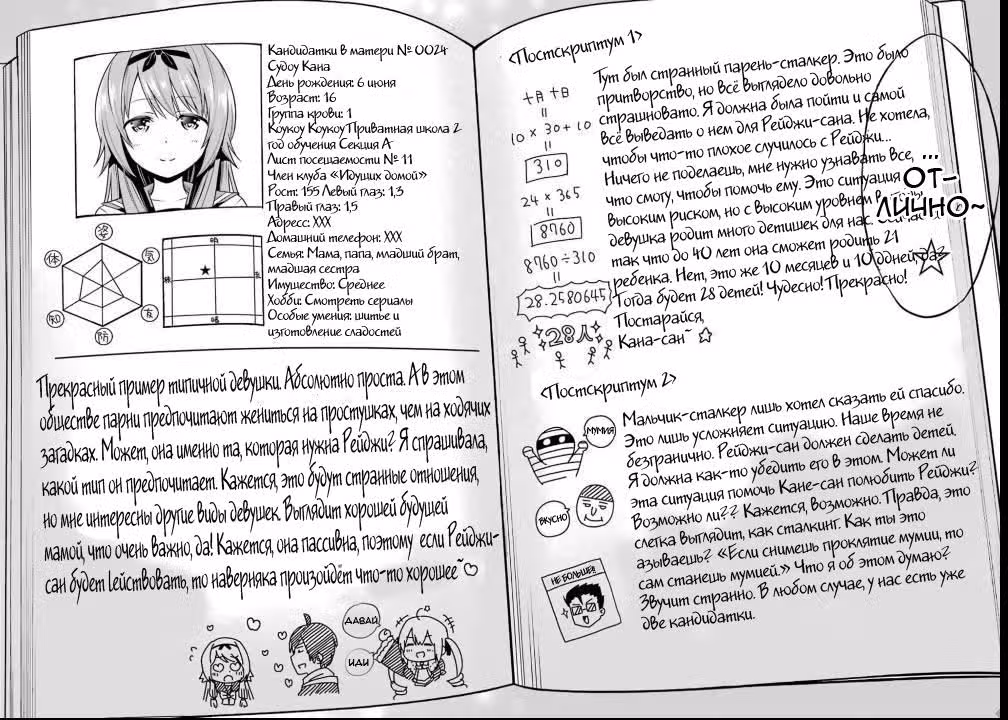 Кандидатки в матери № 0024
Судоу Кана
День рождения: 6 июня
Возраст: 16
Группа крови: 1
Коукоу Коукоу Приватная школа 2
год обучения Секция А
Лист посещаемости № 11
Член клуба «Идущих домой»
Рост: 155 Левый глаз: 1,3
Правый глаз: 1,5
Адрес: ХХХ
Домашний телефон: ХХХ
Семья: Мама, папа, младший брат,
младшая сестра
Имущество: Среднее
Хобби: Смотреть сериалы
Особые умения: шитье и
изготовление сладостей
Прекрасный пример типичной девушки. Абсолютно проста. А в этом
обществе парни предпочитают жениться на простушках, чем на ходячих
загадках. Может, она именно та, которая нужна Рейджи? Я спрашивала,
какой тип он предпочитает. Кажется, это будут странные отношения,
но мне интересны другие виды девушек. Выглядит хорошей будущей
мамой, что очень важно, да! Кажется, она пассивна, поэтому если Рейджи-
сан будет действовать, то наверняка произойдёт что-то хорошее ♡
ДАВАЙ
ИДИ
<Постскриптум 1>
十月十日
=
10 × 30 + 10
=
310
24 × 365
=
8760
8760 ÷ 310
=
28.2580645
28人
Тут был странный парень-сталкер. Это было
притворство, но всё выглядело довольно
страшновато. Я должна была пойти и самой
всё выведать о нем для Рейджи-сана. Не хотела,
чтобы что-то плохое случилось с Рейджи...
Ничего не поделаешь, мне нужно узнавать все,
что смогу, чтобы помочь ему. Это ситуация
высоким риском, но с высоким уровнем
девушка родит много детишек для нас.
так что до 40 лет она сможет родить 21
ребенка. Нет, это же 10 месяцев и 10 дней,
Тогда будет 28 детей! Чудесно! Прекрасно!
Постарайся,
Кана-сан~ ☆
...
ОТ-
ЛИЧНО~
<Постскриптум 2>
МУМИЯ
ВКУСНО
НЕ БОЛЬШЕ!!
Мальчик-сталкер лишь хотел сказать ей спасибо.
Это лишь усложняет ситуацию. Наше время не
безгранично. Рейджи-сан должен сделать детей.
Я должна как-то убедить его в этом. Может ли
эта ситуация помочь Кане-сан полюбить Рейджи?
Возможно ли?? Кажется, возможно. Правда, это
слегка выглядит, как сталкинг. Как ты это
азываешь? «Если снимешь проклятие мумии, то
сам станешь мумией.» Что я об этом думаю?
Звучит странно. В любом случае, у нас есть уже
две кандидатки.